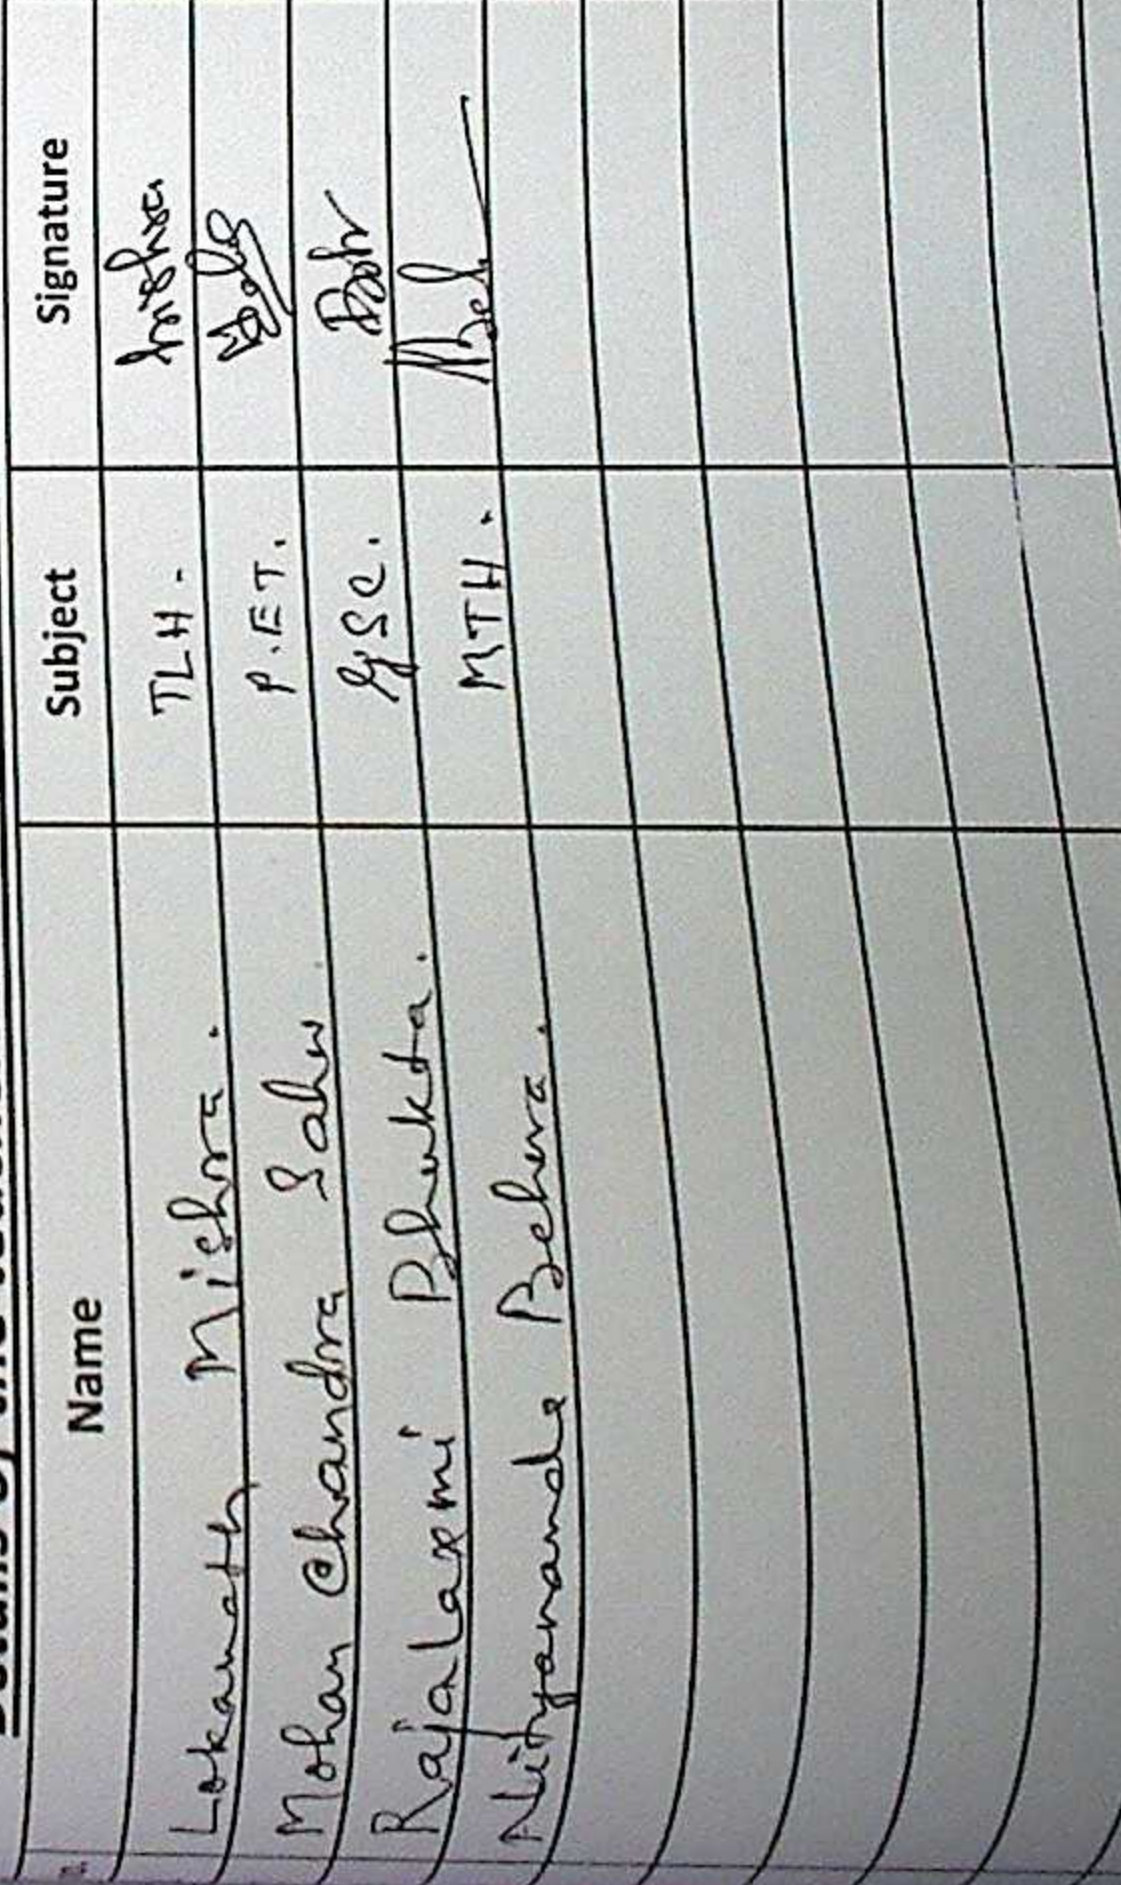 Details of the teachers
Name Subject Signature
Lokanath Mishra. TLH. Mishra
Mohan Chandra Sahu P.ET.
Rajalaxmi Bhukta. GSC.
Nityananda Behera. MTH.